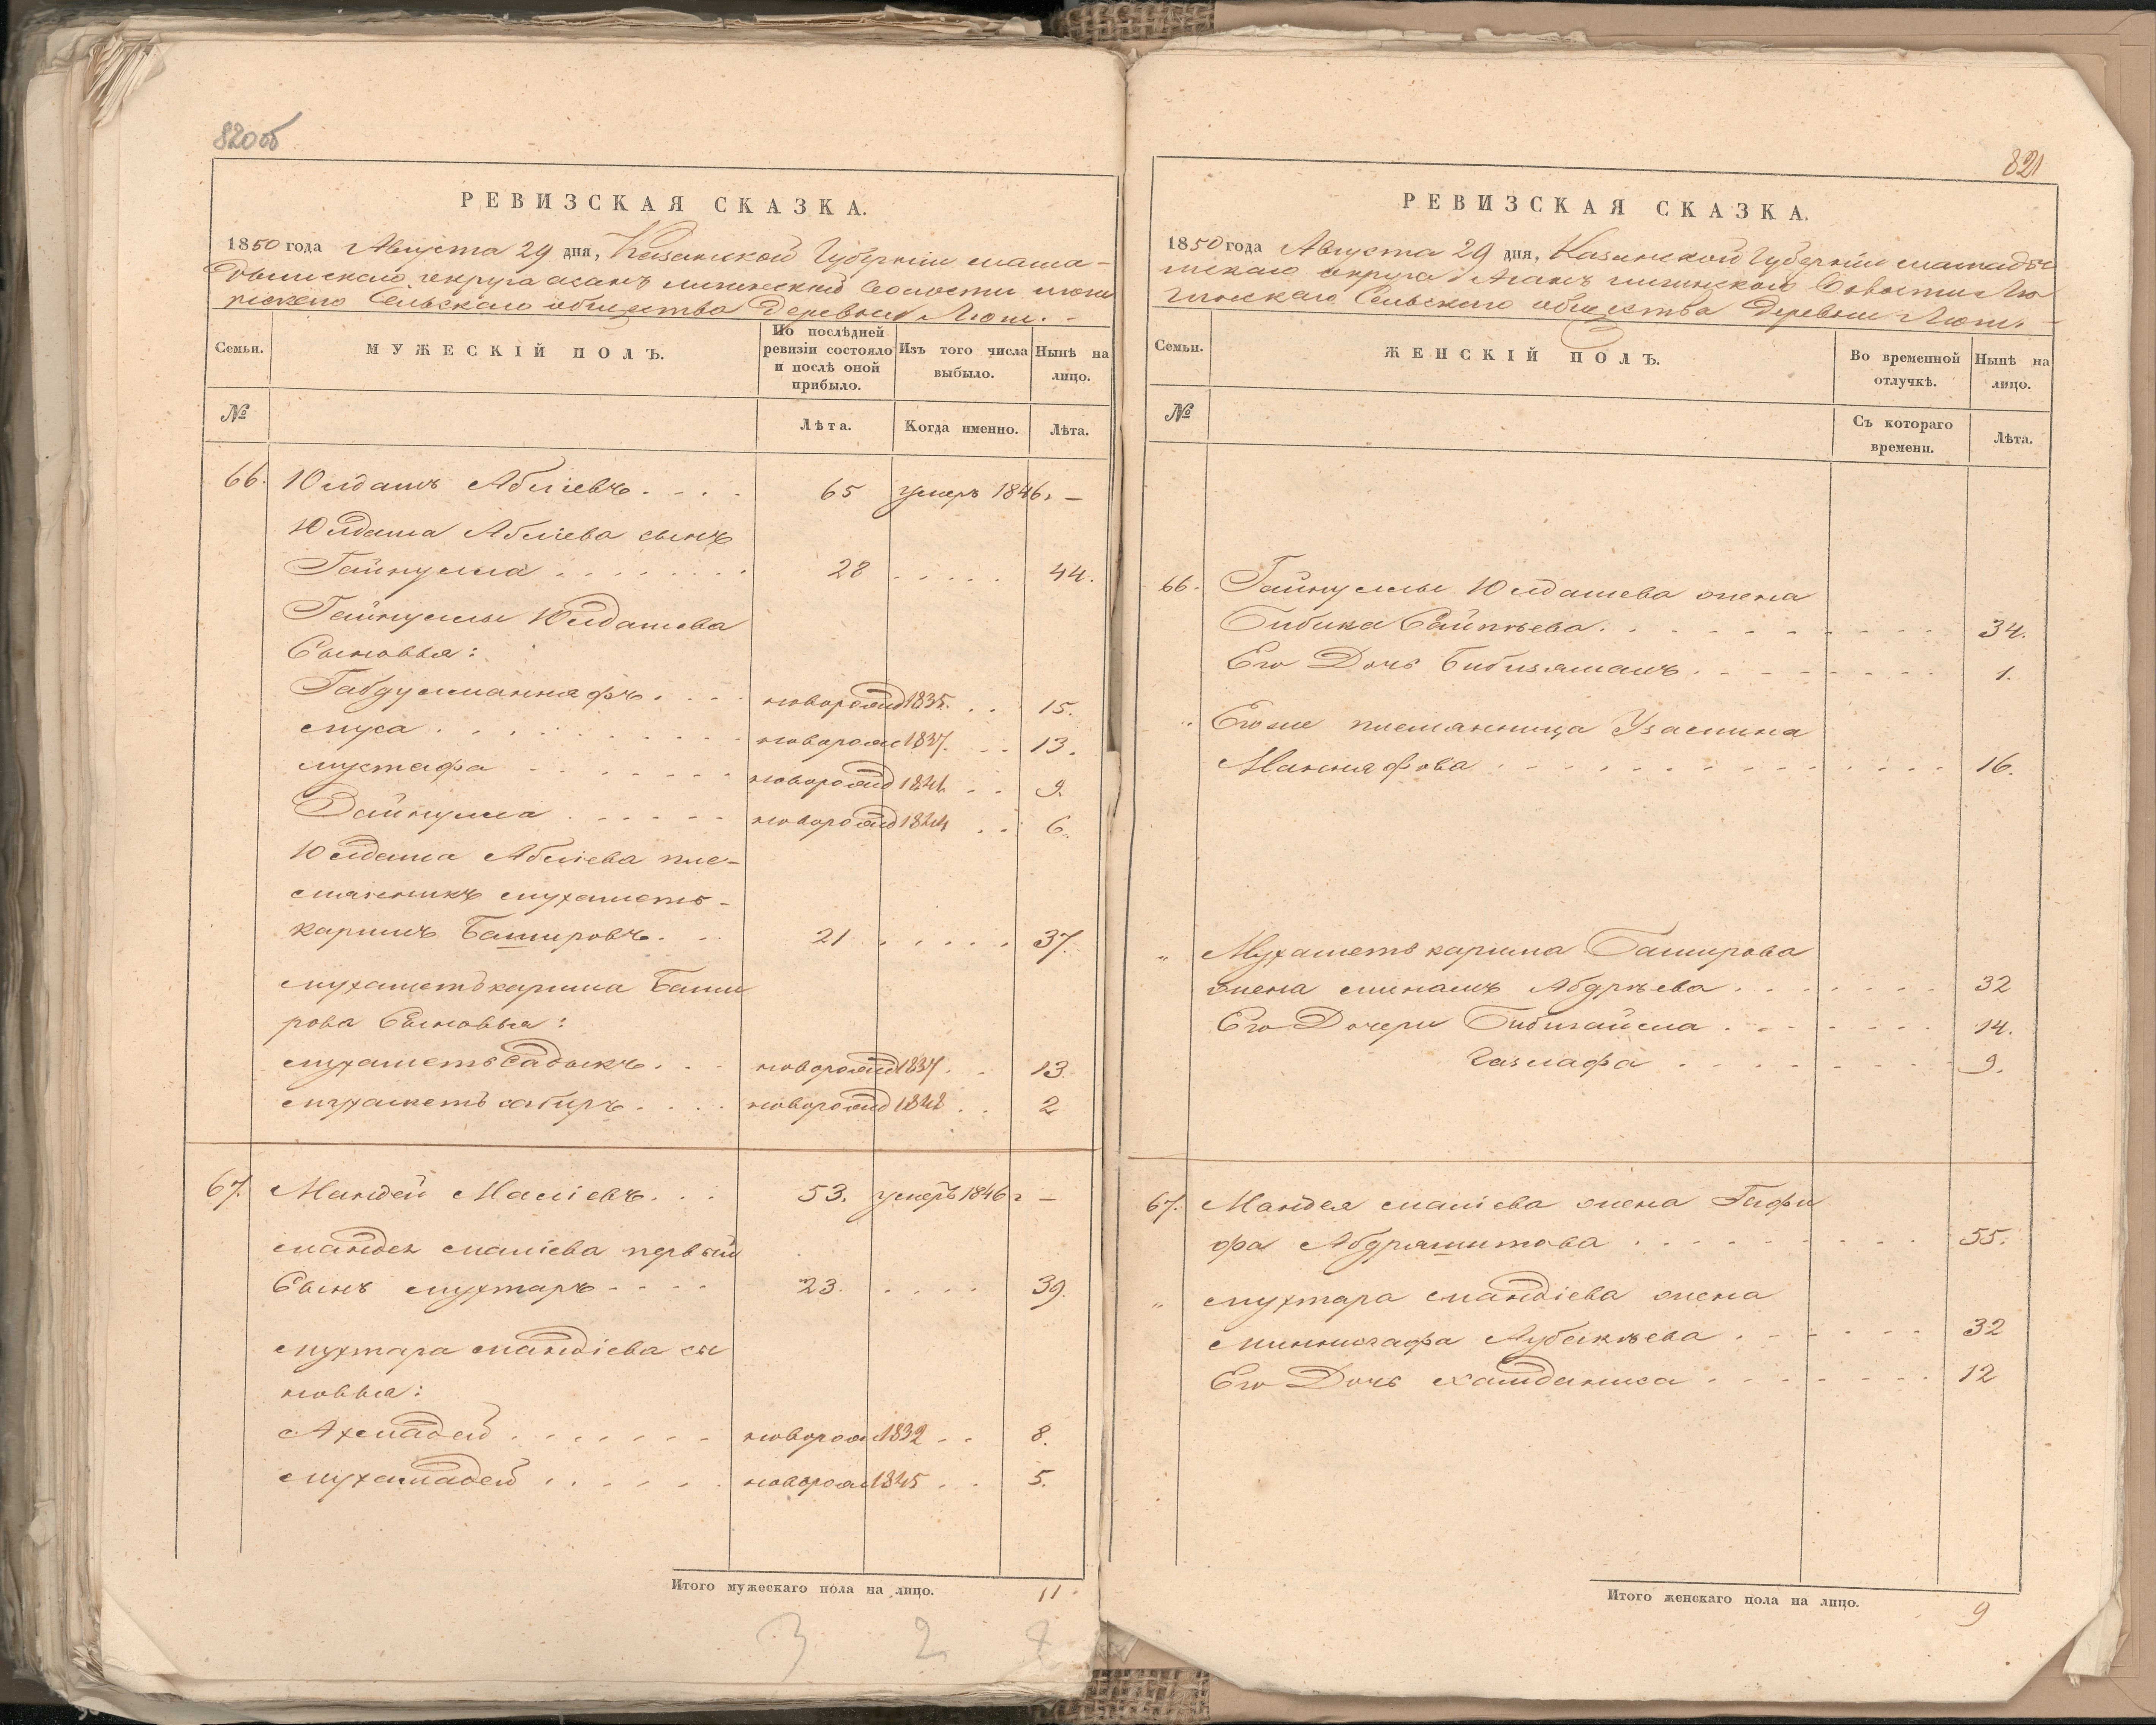 820об
РЕВИЗСКАЯ СКАЗКА.
1850 года Августа 29 дня, Казанской Губерніи мама-
дышскаго округа асанъ волости
Сельскаго общества Деревни Люги.
Семьи.
МУЖЕСКІЙ ПОЛЪ.
По послѣдней ревизіи состояло и послѣ оной прибыло.
Изъ того числа выбыло.
Нынѣ на лицо.
№
Лѣта.
Когда именно.
Лѣта.
66. Юлдашъ Абліевъ. 65 умеръ 1846. —
Юлдаша Абліева сынъ
Гайнулла 28 44.
Гайнуллы Юлдашева
Сыновья:
Габдулманнафъ. новорожд 1835. 15.
муса новорож 1837. 13.
мустафа новорожд 1841 9.
Зайнулла новорожд 1844 6.
Юлдаша Абліева пле-
мянникъ мухаметъ-
каримъ Башировъ. 21 37.
мухаметькарима Баши
рова Сыновья:
мухаметь Садыкъ. новорожд 1837. 13.
мухаметь сабиръ. новорожд 1848 2
67. Мандей Маліевъ. 53. умеръ 1846 г —
мандея маліева первый
Сынъ мухтаръ 23. 39.
мухтара мандіева сы
новья:
Ахмадей новорож 1832 8.
мухамадей новорож 1845 5.
Итого мужескаго пола на лицо. 11
3 2
821
РЕВИЗСКАЯ СКАЗКА.
1850 года Августа 29 дня, Казанской Губерніи мамады
шскаго округа Асанъ Волости Лю
Сельскаго общества Деревни Люги.
Семьи.
ЖЕНСКІЙ ПОЛЪ.
Во временной отлучкѣ.
Нынѣ на лицо.
№
Съ котораго времени.
Лѣта.
66. Гайнуллы Юлдашева жена
Бибика Сайпѣева. 34.
Его Дочь Бибизямалъ 1.
„ Его же племянница Узамина
Маннафова 16.
„ Мухаметь карима Баширова
жена минлямъ Абдрѣева 32
Его Дочери Бибигайша 14.
Газлафа 9.
67. Мандея маліева жена Гафи
фа Абдряшитова 55.
„ мухтара мандіева жена
миннигафа Аубакѣева 32
Его Дочь Хамданиса 12
Итого женскаго пола на лицо. 9